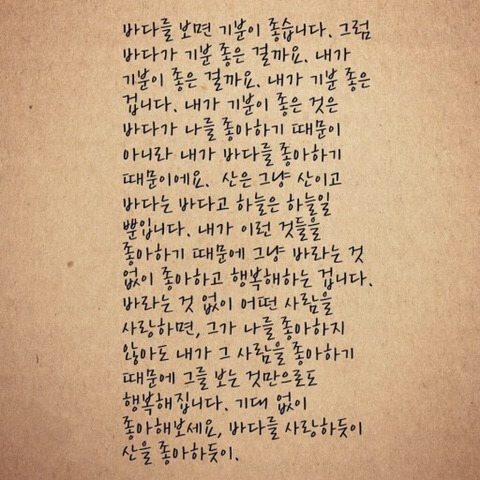 바다를 보면 기분이 좋습니다. 그럼
바다가 기분 좋은 걸까요. 내가
기분이 좋은 걸까요. 내가 기분 좋은
겁니다. 내가 기분이 좋은 것은
바다가 나를 좋아하기 때문이
아니라 내가 바다를 좋아하기
때문이에요. 산은 그냥 산이고
바다는 바다고 하늘은 하늘일
뿐입니다. 내가 이런 것들을
좋아하기 때문에 그냥 바라는 것
없이 좋아하고 행복해하는 겁니다.
바라는 것 없이 어떤 사람을
사랑하면, 그가 나를 좋아하지
않아도 내가 그 사람을 좋아하기
때문에 그를 보는 것만으로도
행복해집니다. 기대 없이
좋아해보세요, 바다를 사랑하듯이
산을 좋아하듯이.